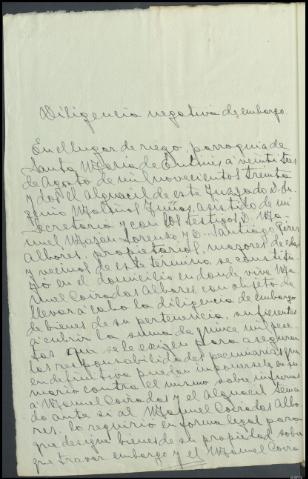 Diligencia negativa de embargo.
En el lugar de riego, parroquia de
Santa María de a veintitres
de Agosto de mil novecientos treinta
y dos el alguacil de este Juzgado D.
Martinez asistido de mi
Secretario y con los testigos D. Ma-
nuel Lorenzo y D. Santiago Perez
Albores, propietarios, mayores de edad
y vecinos de este termino se constitu-
yó en el domicilio en donde vive Ma-
nuel Coirados Albores con objeto de
llevar a cabo la diligencia de embargo
de bienes de su pertenencia, suficientes
a cubrir la suma de quince mil pese-
tas que se le exigen para asegurar
las responsabilidades pecuniarias que
en definitiva puedan imponersele en su-
mario contra el mismo sobre
a Manuel Coirados y el Alguacil
lo ante si al Manuel Coirados Albo-
res, lo requirio en forma legal para
que designe bienes de su propiedad sobre
que trabar embargo y el Manuel Coira-